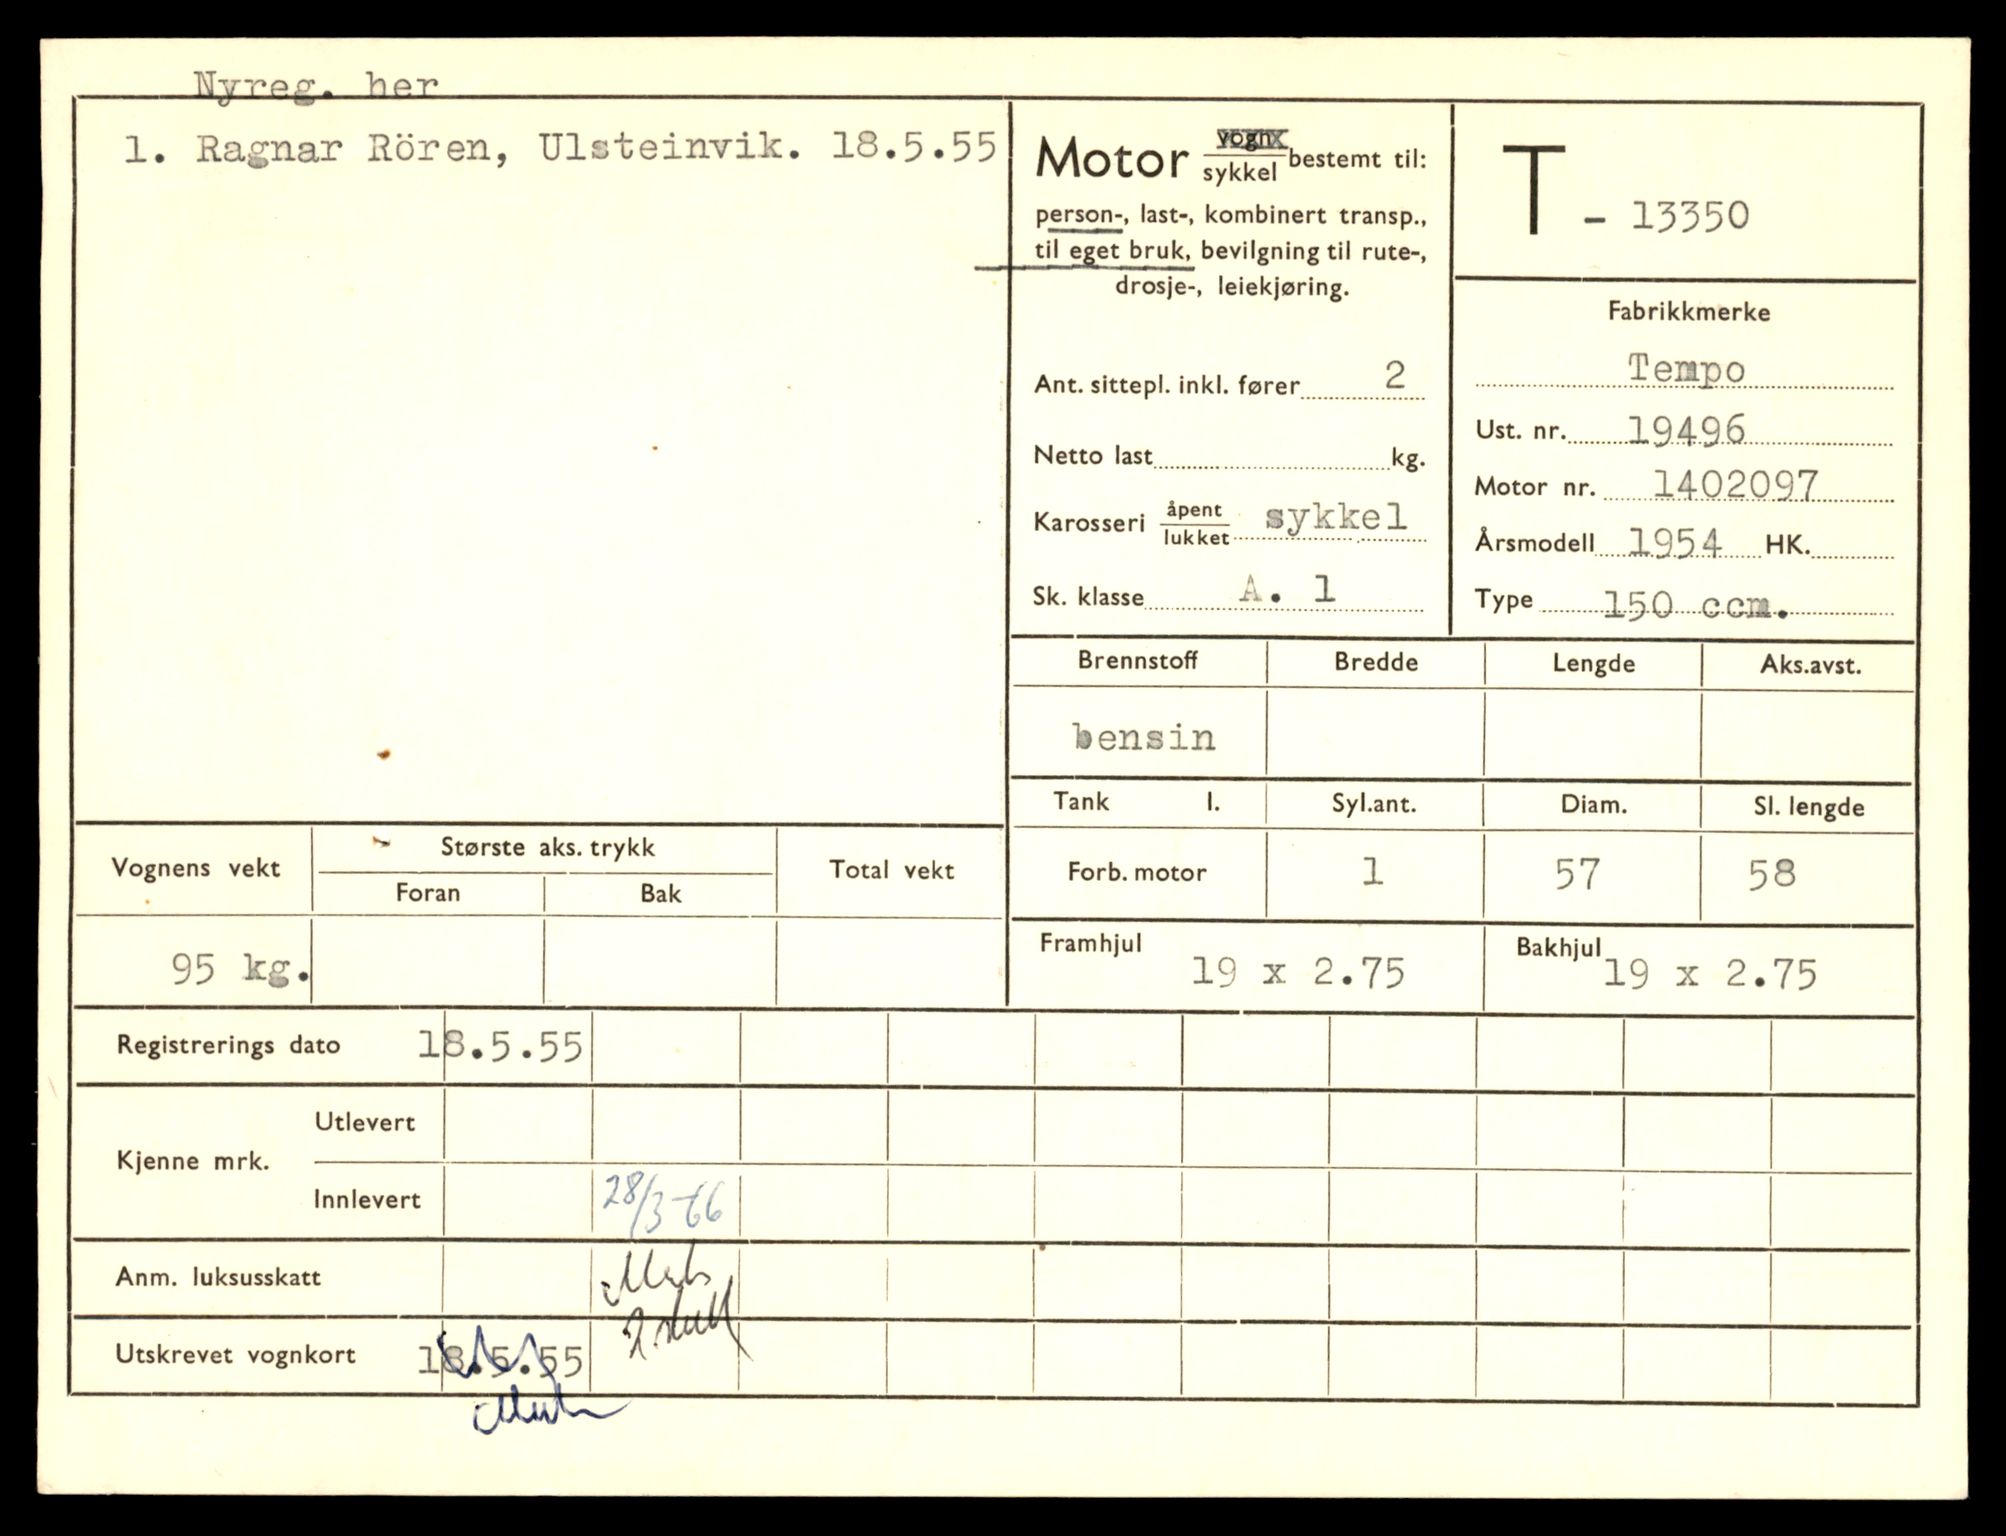 Nyreg. her
1. Ragnar Rören, Ulsteinvik. 18.5.55
Motor vogn/sykkel bestemt til:
person-, last-, kombinert transp.,
til eget bruk, bevilgning til rute-,
drosje-, leiekjøring.
Ant. sittepl. inkl. fører 2
Netto last kg.
Karosseri åpent/lukket sykkel
Sk. klasse A. 1
T - 13350
Fabrikkmerke
Tempo
Ust. nr. 19496
Motor nr. 1402097
Årsmodell 1954 HK.
Type 150 ccm.
Brennstoff Bredde Lengde Aks.avst.
bensin
Tank l. Syl.ant. Diam. Sl. lengde
Forb. motor 1 57 58
Framhjul 19 x 2.75 Bakhjul 19 x 2.75
Vognens vekt Største aks. trykk Total vekt
Foran Bak
95 kg.
Registrerings dato 18.5.55
Kjenne mrk. Utlevert
Innlevert 28/3-66
Anm. luksusskatt
Utskrevet vognkort 18.5.55